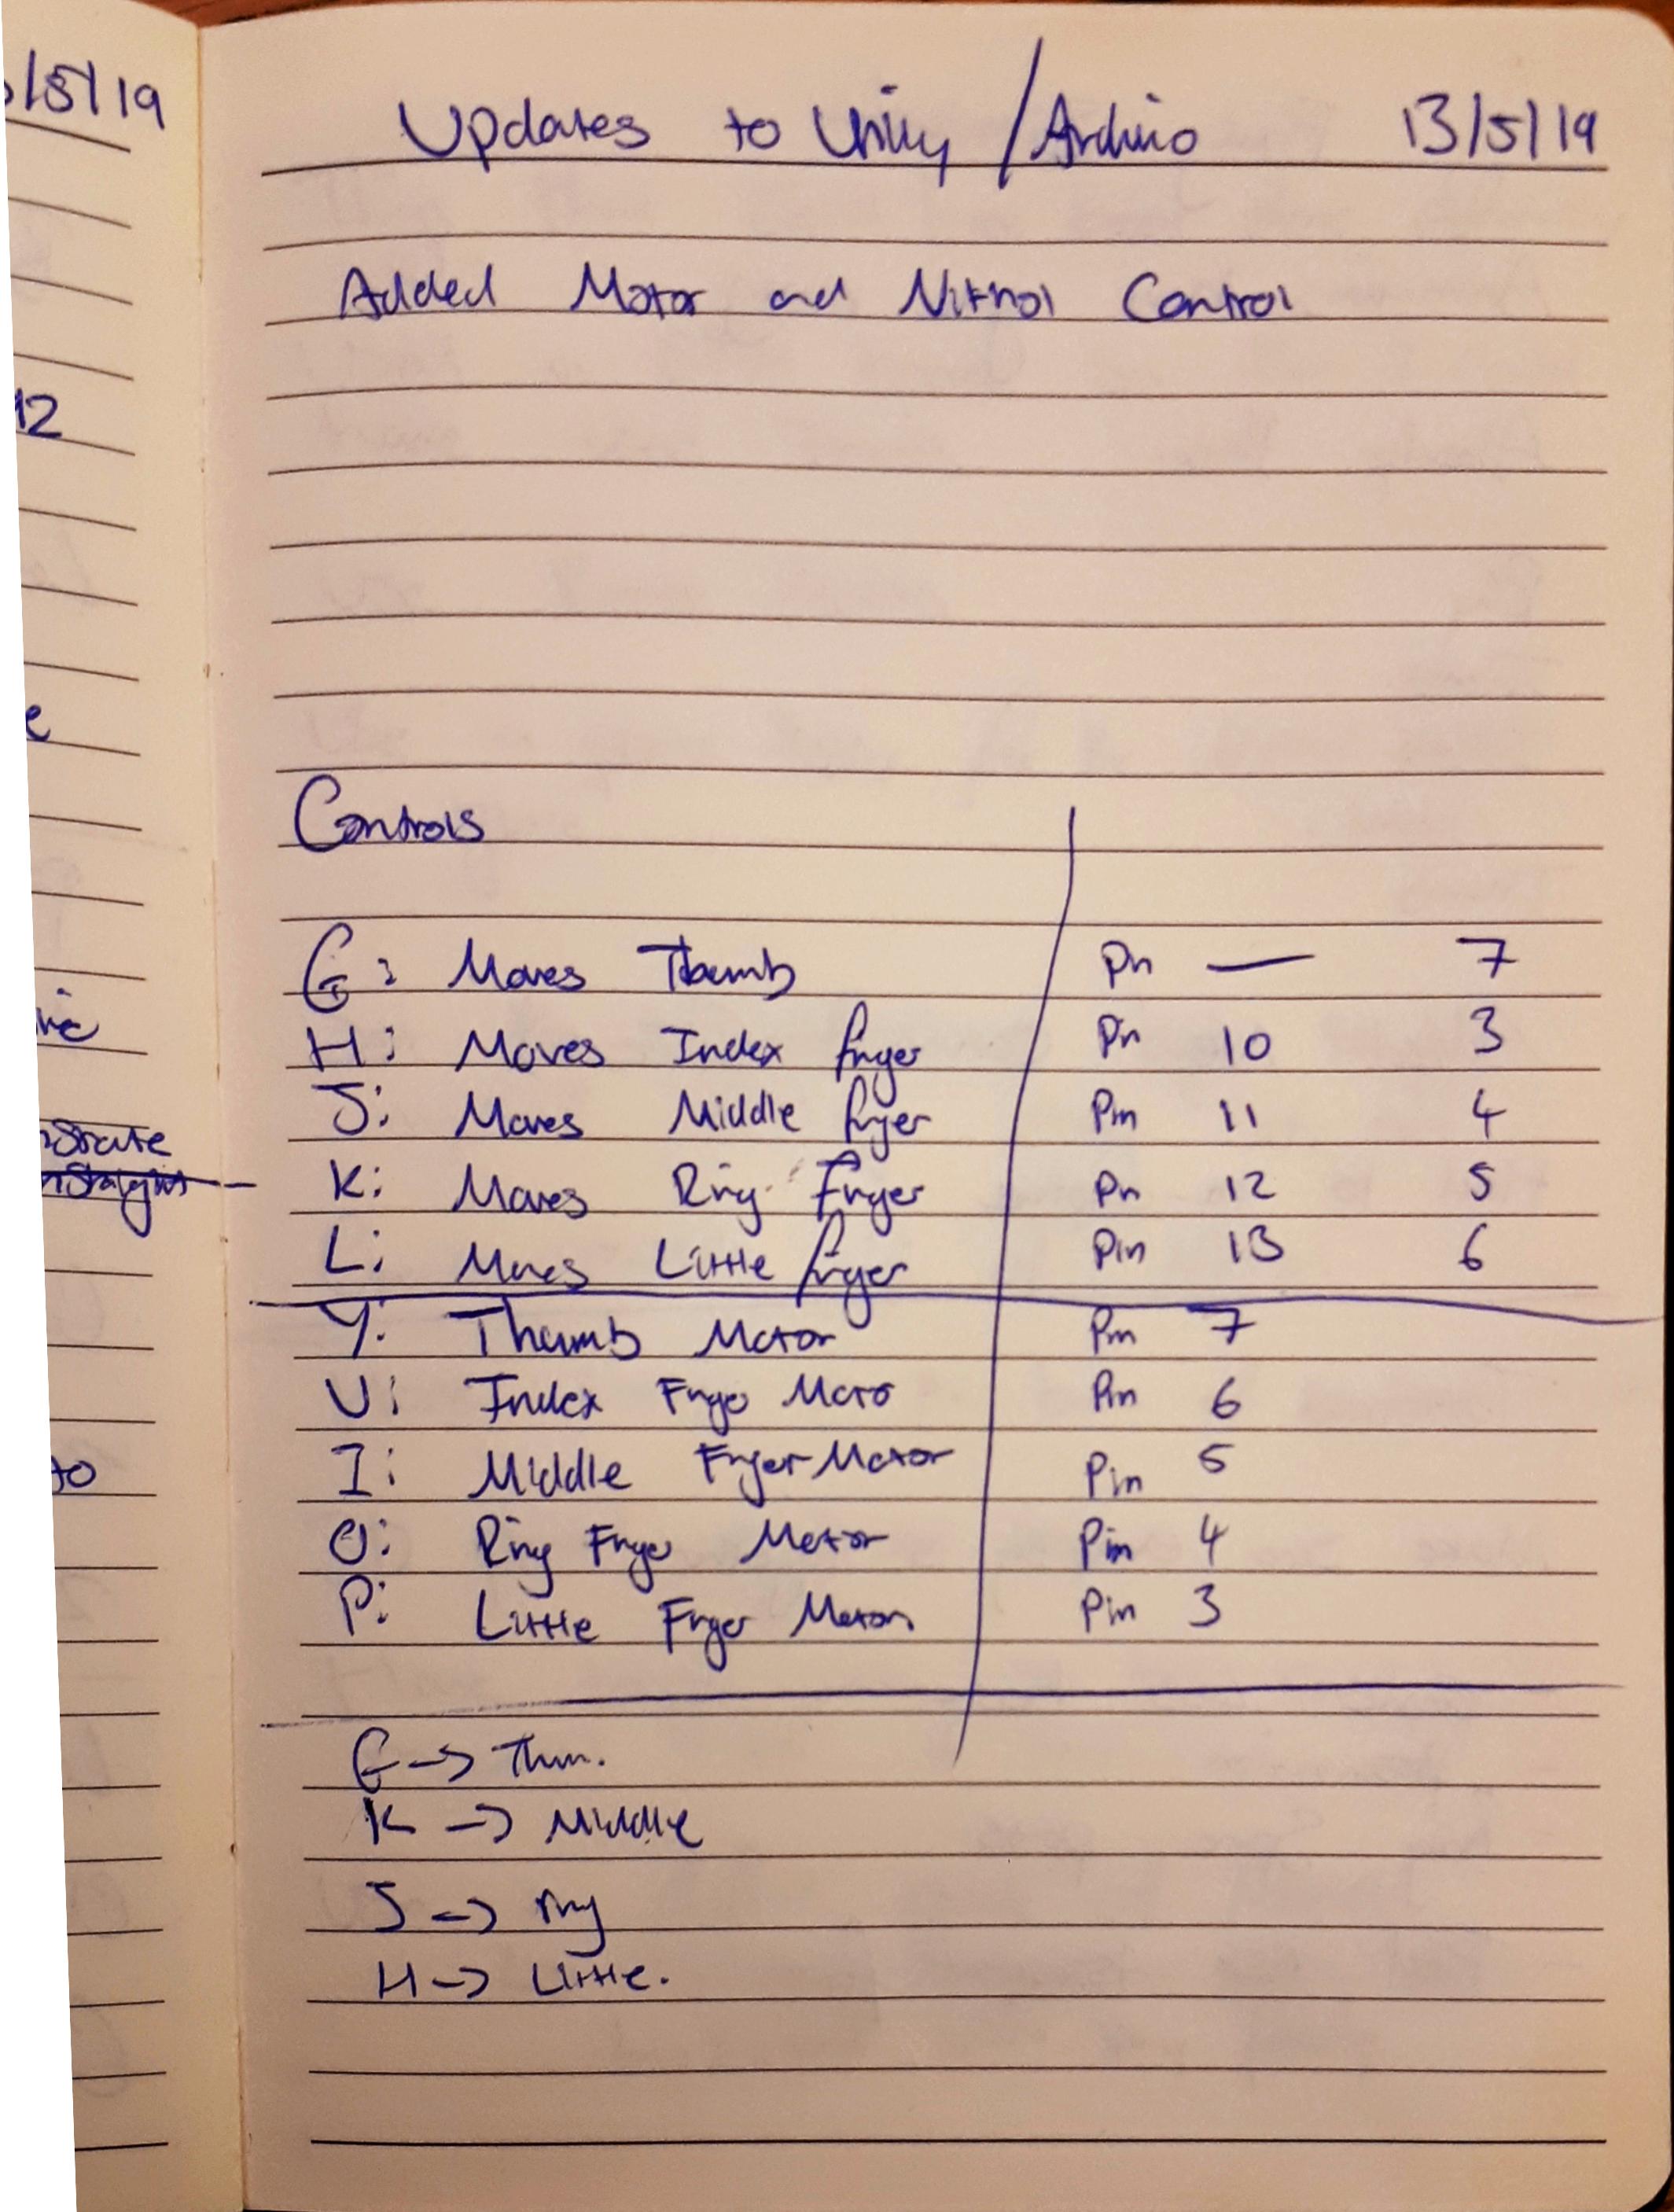 /5/19
12
e
to
Updates to Unity / Arduino 13/5/19
Added Motor and Nitinol Control
Controls
G: Moves Thumb Pin — 7
H: Moves Index finger Pin 10 3
J: Moves Middle finger Pin 11 4
K: Moves Ring Finger Pin 12 5
L: Moves Little finger Pin 13 6
Y: Thumb Motor Pin 7
U: Index Finger Motor Pin 6
I: Middle Finger Motor Pin 5
O: Ring Finger Motor Pin 4
P: Little Finger Motor Pin 3
G -> Thum.
K -> Middle
J -> ring
H -> Little.